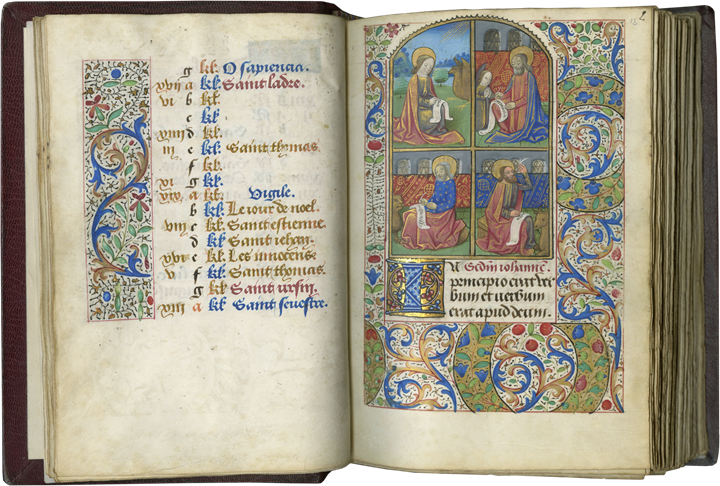 g kl. O sapiencia.
xvii a kl. Saint ladre.
vi b kl.
c kl.
xiiii d kl.
iii e kl. Saint thomas.
f kl.
xi g kl.
xix a kl. Vigile.
b kl. Le iour de noel.
viii c kl. Saint estienne.
d kl. Saint iehan.
xvi e kl. Les innocens.
v f kl. Saint thomas.
g kl. Saint ursin.
xiii a kl. Saint sevestre.
IN Scdm iohanne.
principio erat ver
bum et verbum
erat apud deum.